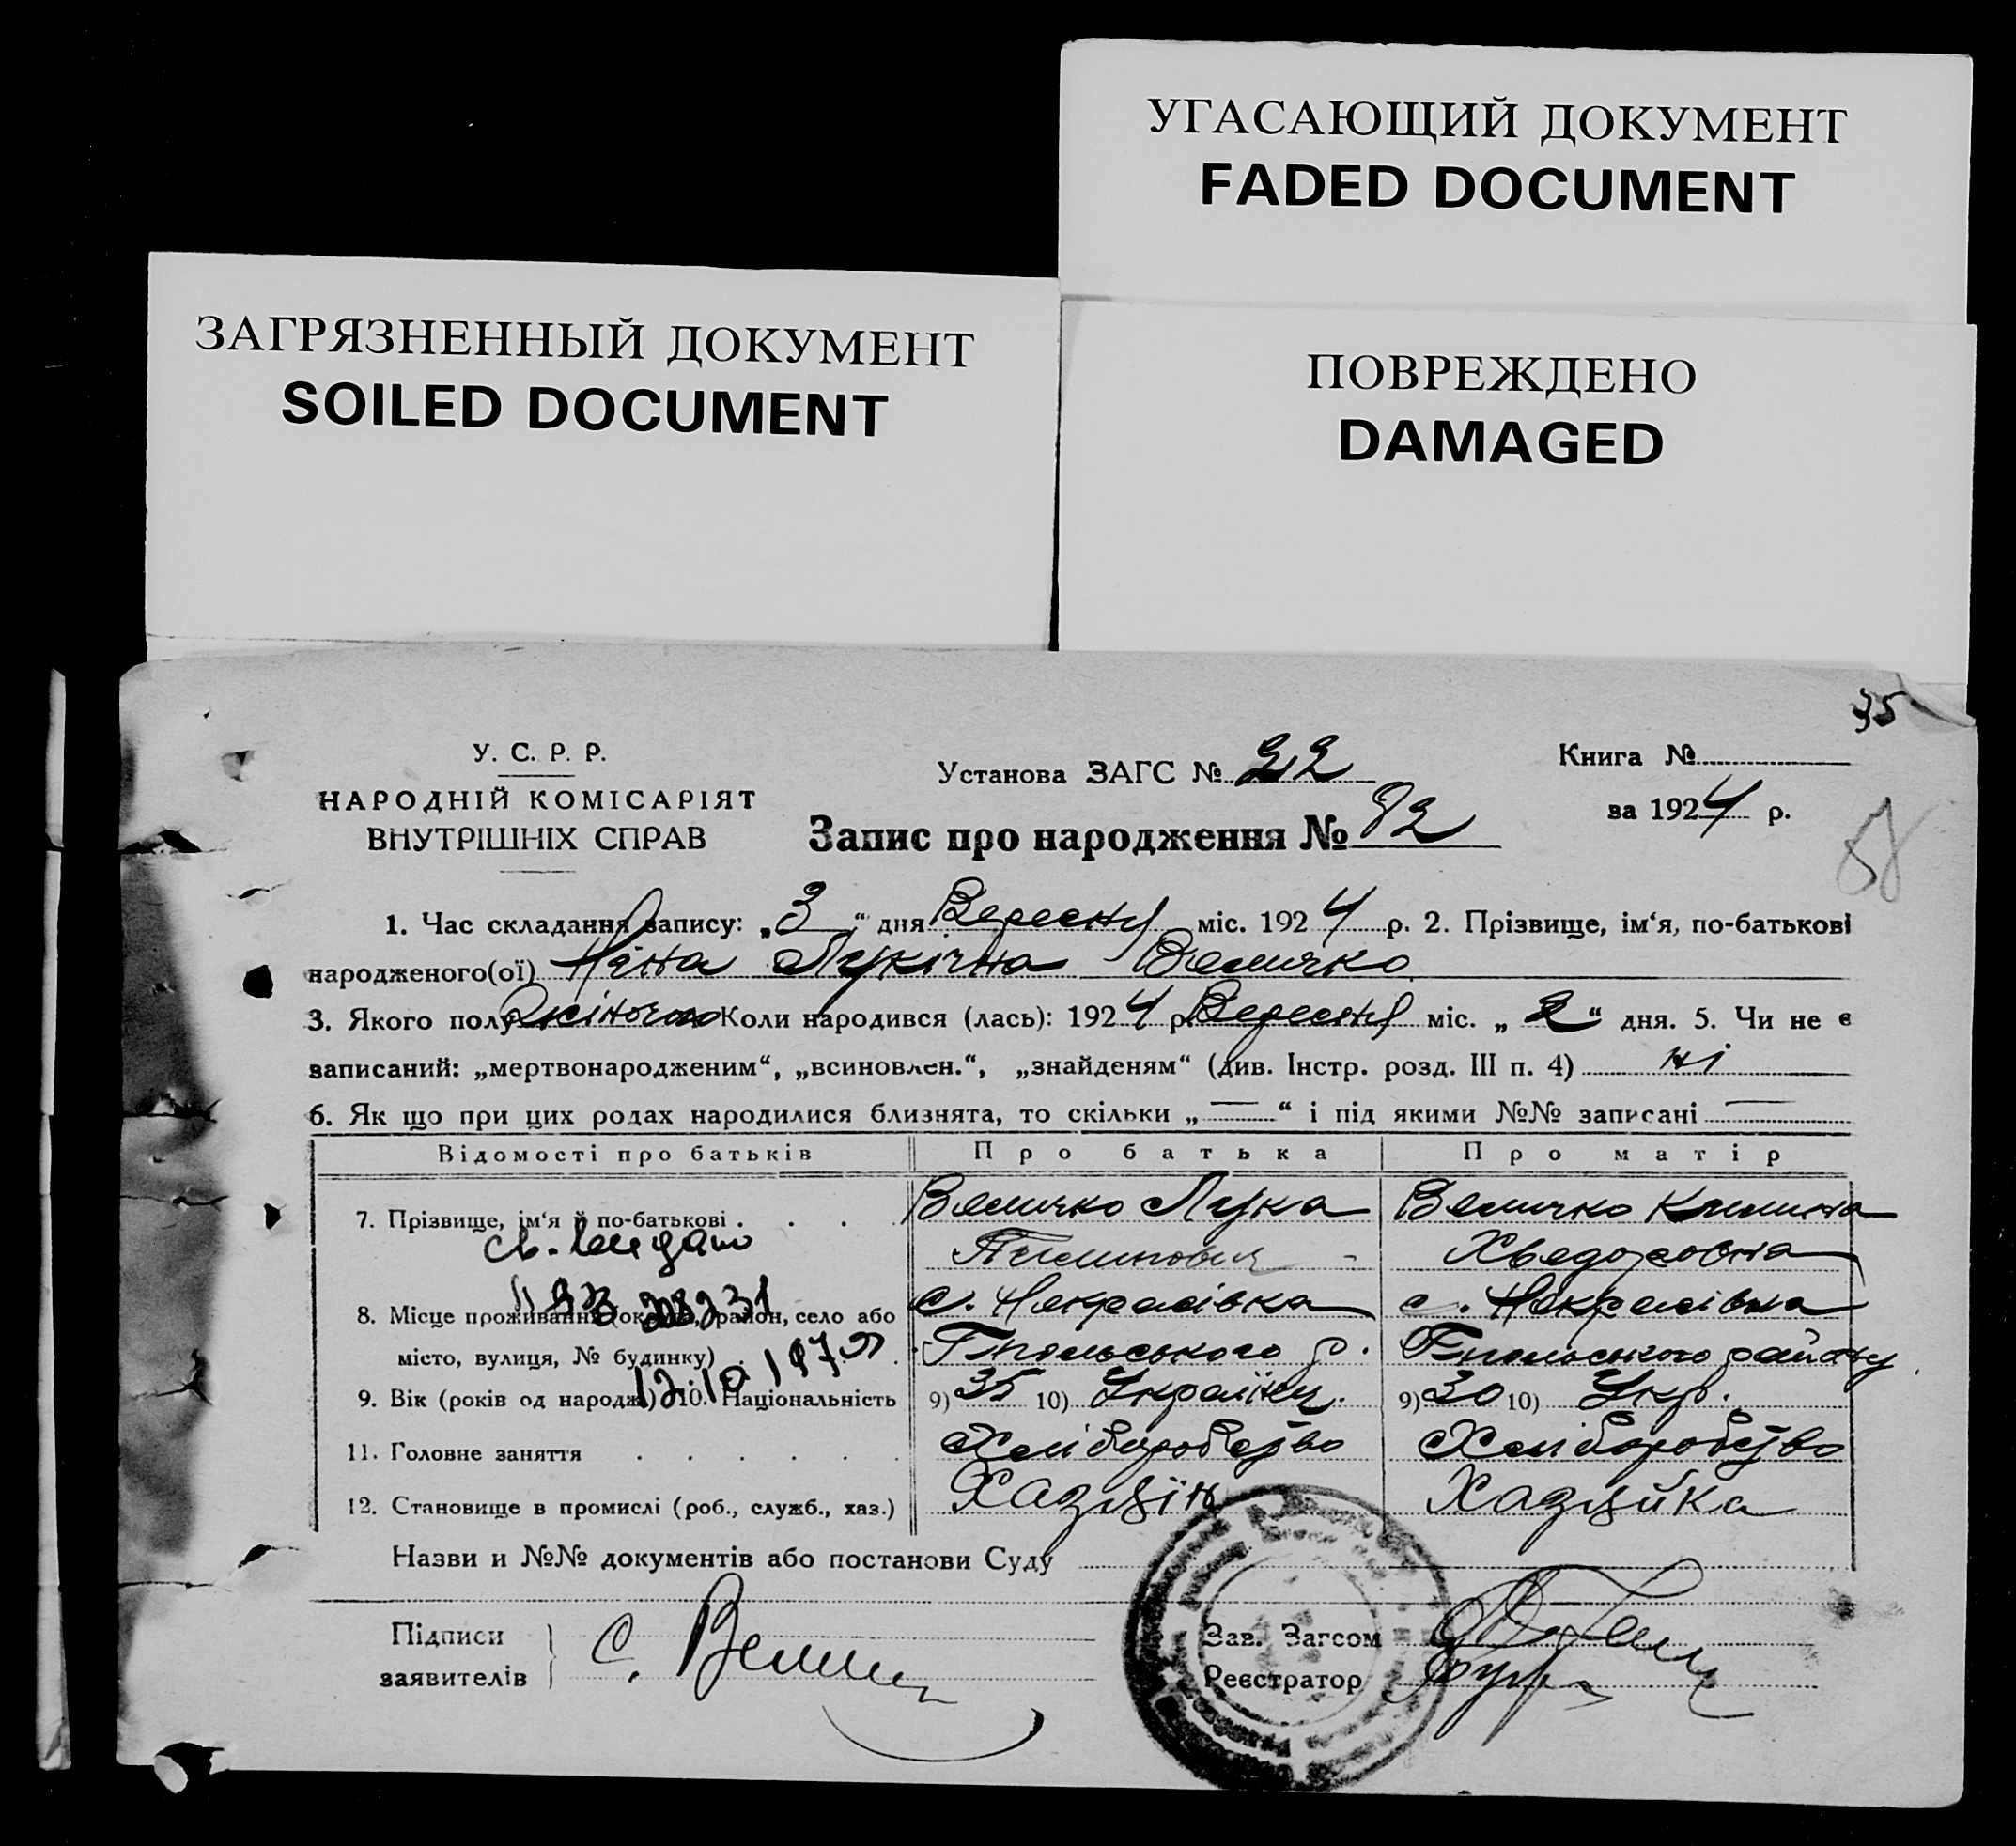 УГАСАЮЩИЙ ДОКУМЕНТ
FADED DOCUMENT
ЗАГРЯЗНЕННЫЙ ДОКУМЕНТ
SOILED DOCUMENT
ПОВРЕЖДЕНО
DAMAGED
35
У. С. Р. Р.
НАРОДНІЙ КОМІСАРІЯТ
ВНУТРІШНІХ СПРАВ
Установа ЗАГС № 22
Запис про народження № 92
Книга №
за 1924 р.
1. Час складання запису: „3“ дня Вересня міс. 1924 р. 2. Прізвище, ім‘я, по-батькові
народженого(ої) Ніна Лукічна Величко
3. Якого полу жіночого Коли народився (лась): 1924 р. Вересня міс. „2“ дня. 5. Чи не є
записаний: „мертвонародженим“, „всиновлен.“, „знайденям“ (див. Інстр. розд. III п. 4) ні
6. Як що при цих родах народилися близнята, то скільки „—“ і під якими №№ записані —
Відомості про батьків Про батька Про матір
7. Прізвище, ім‘я й по-батькові Величко Лука Величко
Хведоровна
8. Місце проживання (округа, район, село або с. Некрасівка с. Некрасівка
місто, вулиця, № будинку) р. району
9. Вік (років од народж.) 10. Національність 9) 35 10) Українец. 9) 30 10) Укр.
11. Головне заняття Хліборобство Хліборобство
12. Становище в промислі (роб., служб., хаз.) Хазяїн Хазяйка
Назви и №№ документів або постанови Суду
Підписи
заявителів
С. Велич
Зав. Загсом
Реєстратор